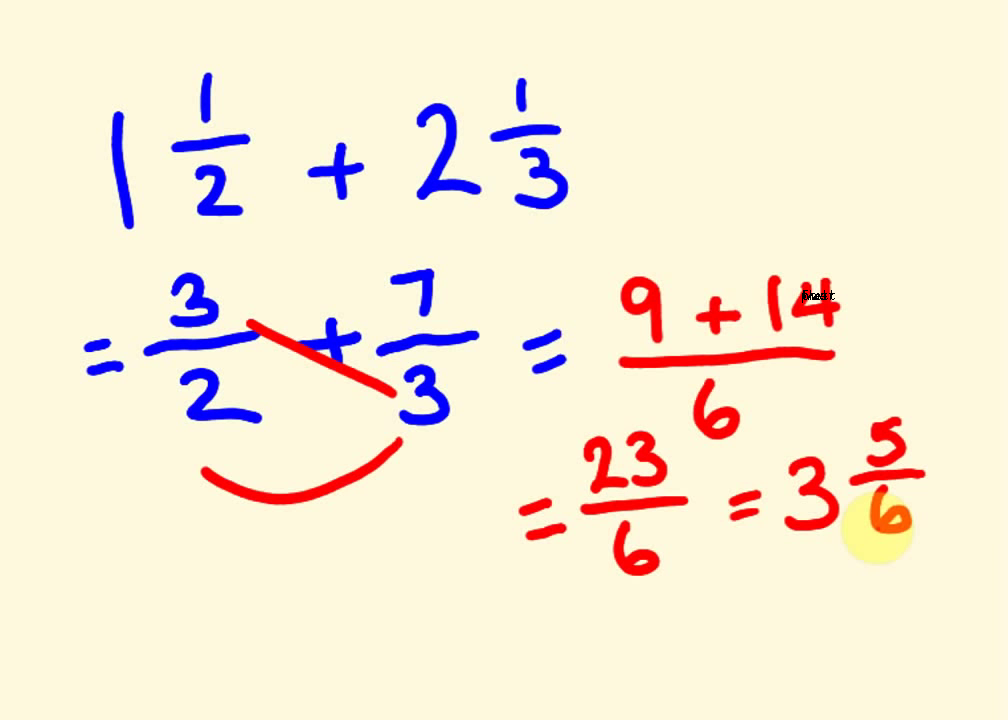 1 1/2 + 2 1/3
= 3/2 + 7/3 = (9 + 14)/6
= 23/6 = 3 5/6